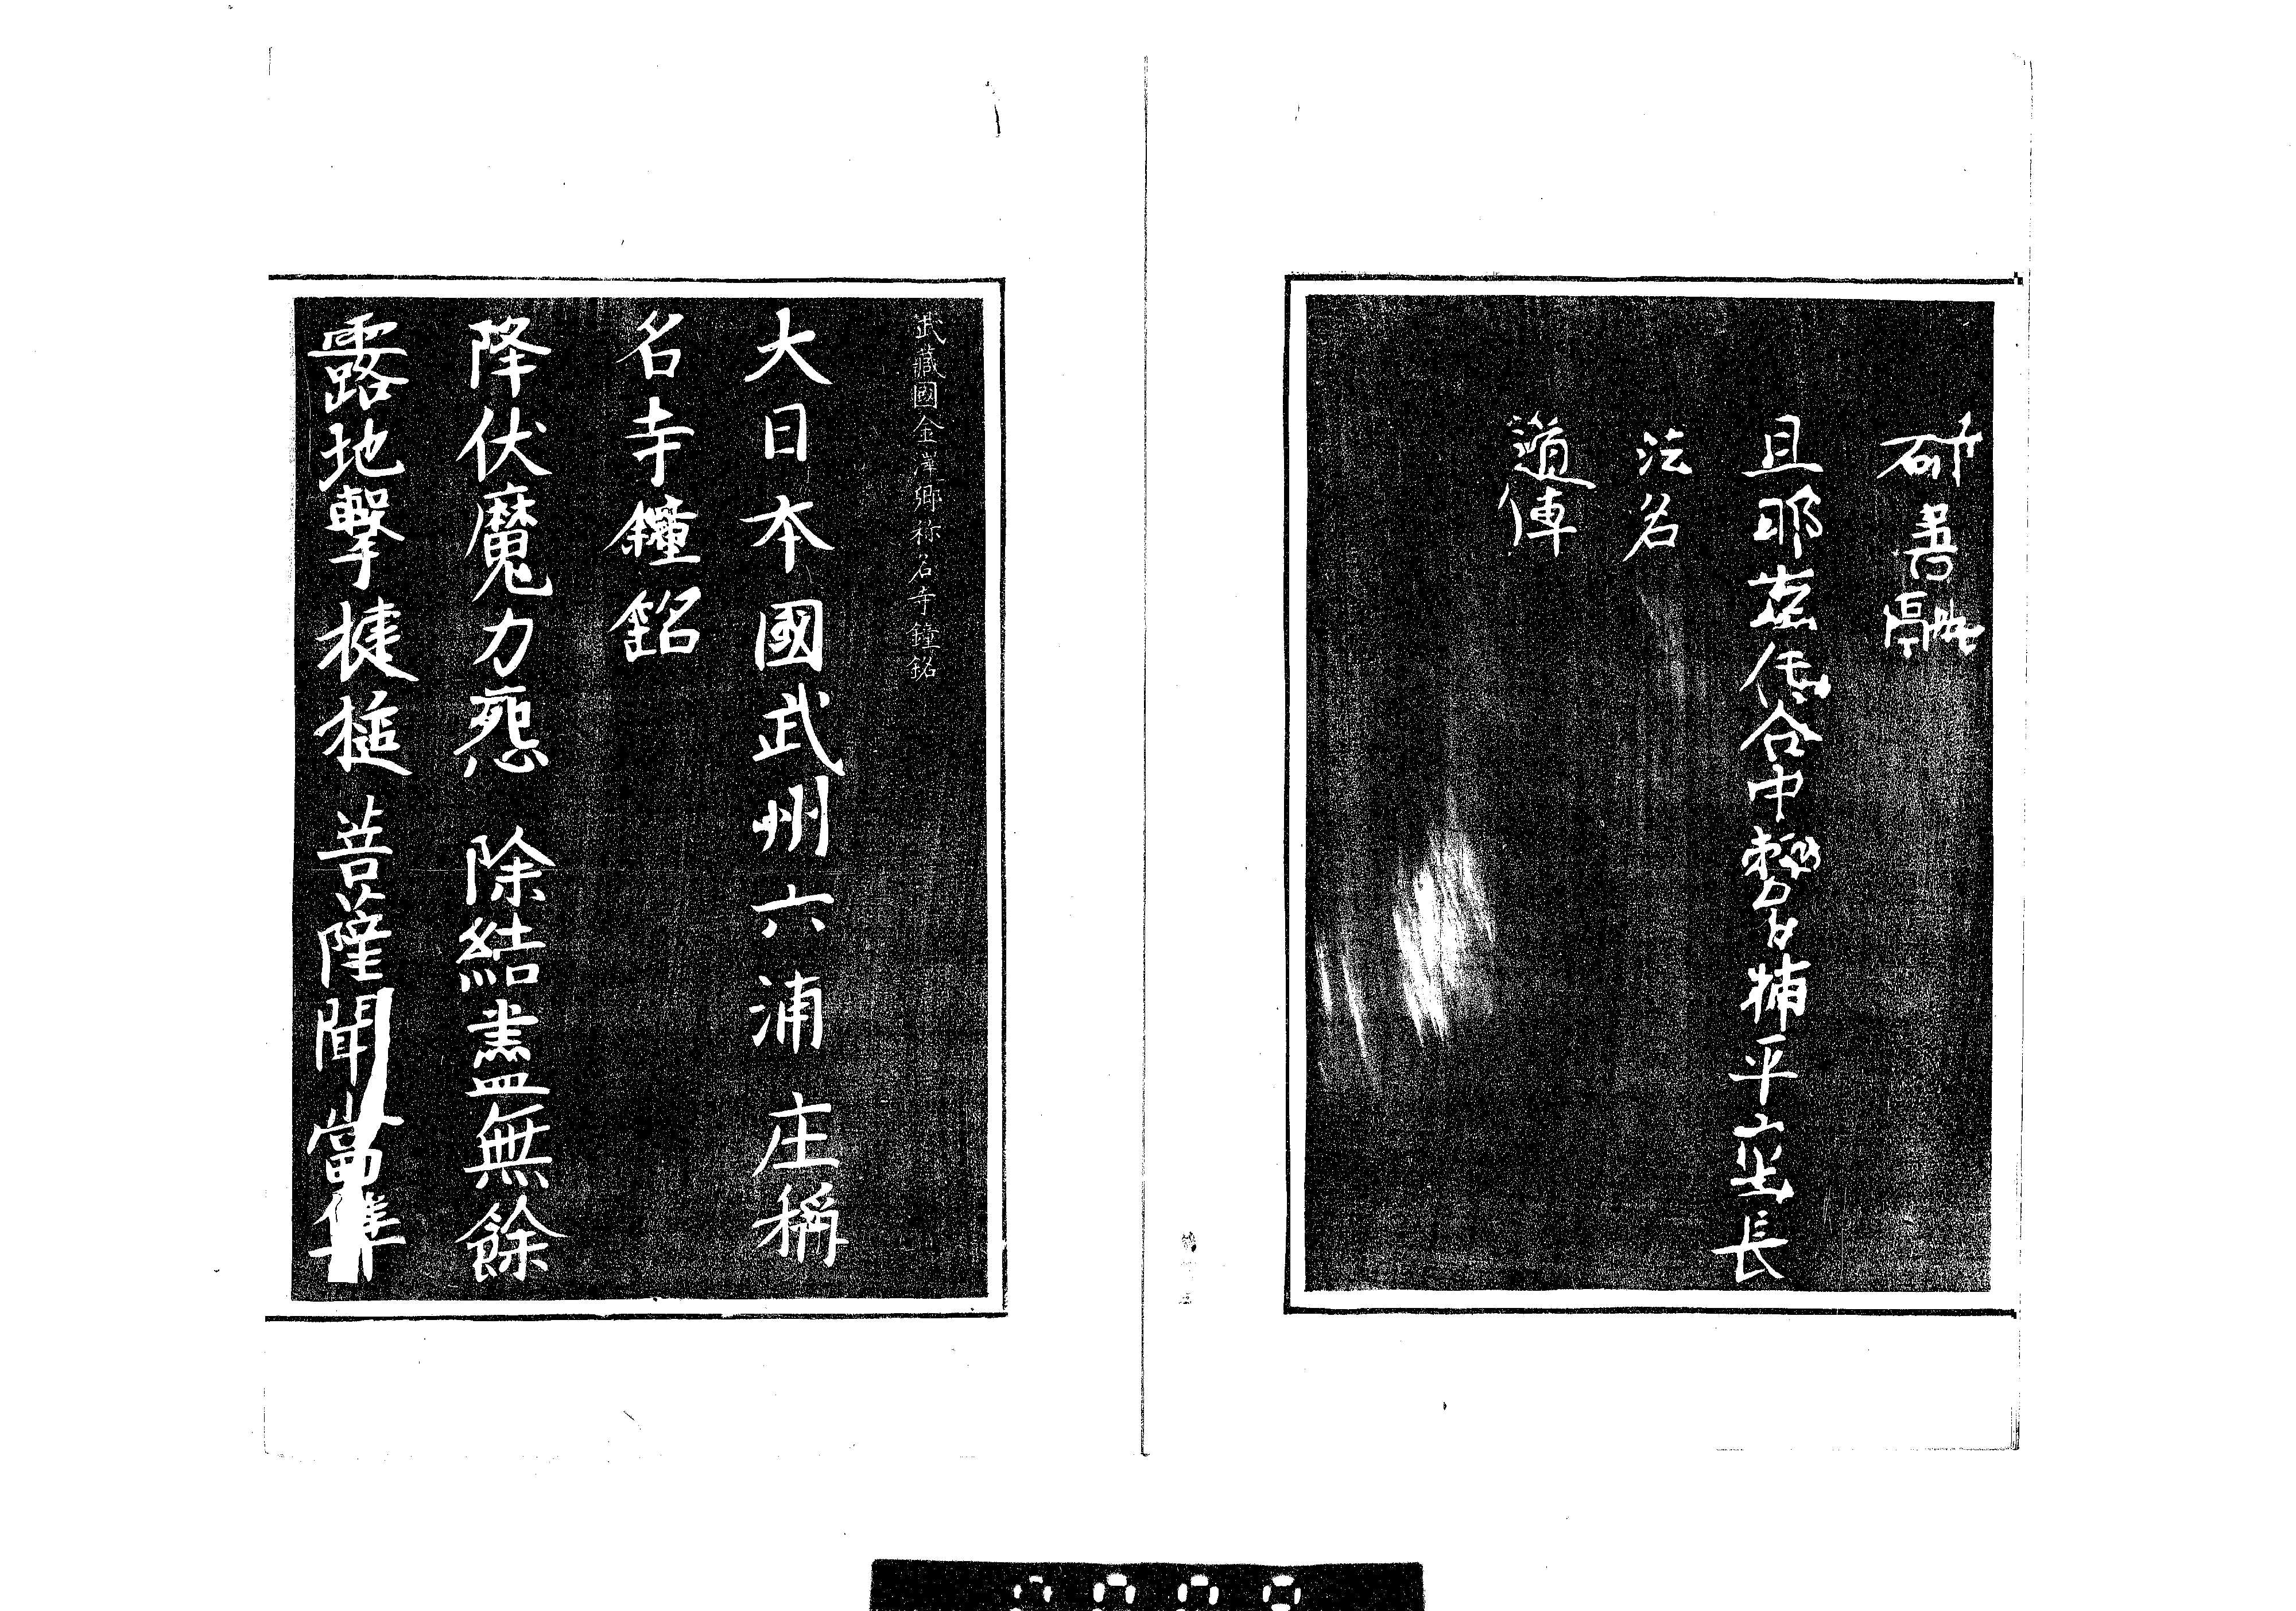 研善融
且耶合中輔平長
法名
道傳
武藏國金澤鄉称名寺鐘銘
大日本國武州六浦庄稱
名寺鐘銘
降伏魔力怨 除結盡無餘
露地擊揵槌 菩薩聞當集